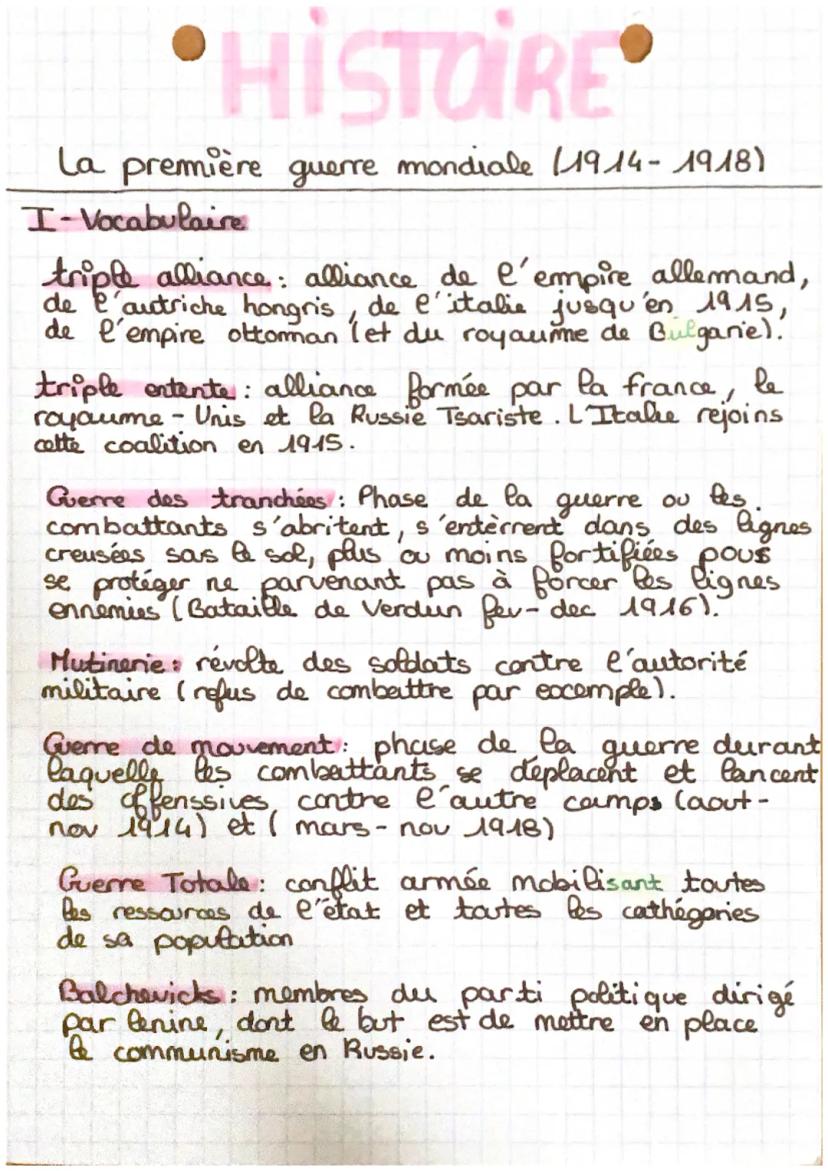 HISTOIRE
La première guerre mondiale (1914-1918)
I-Vocabulaire
triple alliance : alliance de l'empire allemand,
de l'autriche hongris, de l'italie jusqu'en 1915,
de l'empire ottoman (et du royaume de Bulgarie).
triple entente : alliance formée par la france, le
royaume-Unis et la Russie Tsariste. L'Italie rejoins
cette coalition en 1915.
Guerre des tranchées : Phase de la guerre ou les
combattants s'abritent, s'entèrrent dans des lignes
creusées sous le sol, plus ou moins fortifiées pour
se protéger ne parvenant pas à forcer les lignes
ennemies (Bataille de Verdun fev-dec 1916).
Mutinerie : révolte des soldats contre l'autorité
militaire (refus de combattre par excemple).
Guerre de mouvement : phase de la guerre durant
laquelle les combattants se déplacent et lancent
des offenssives contre l'autre camps (aout-
nov 1914) et (mars-nov 1918)
Guerre Totale : conflit armée mobilisant toutes
les ressources de l'état et toutes les cathégories
de sa population
Bolchevicks : membres du parti politique dirigé
par lenine, dont le but est de mettre en place
le communisme en Russie.